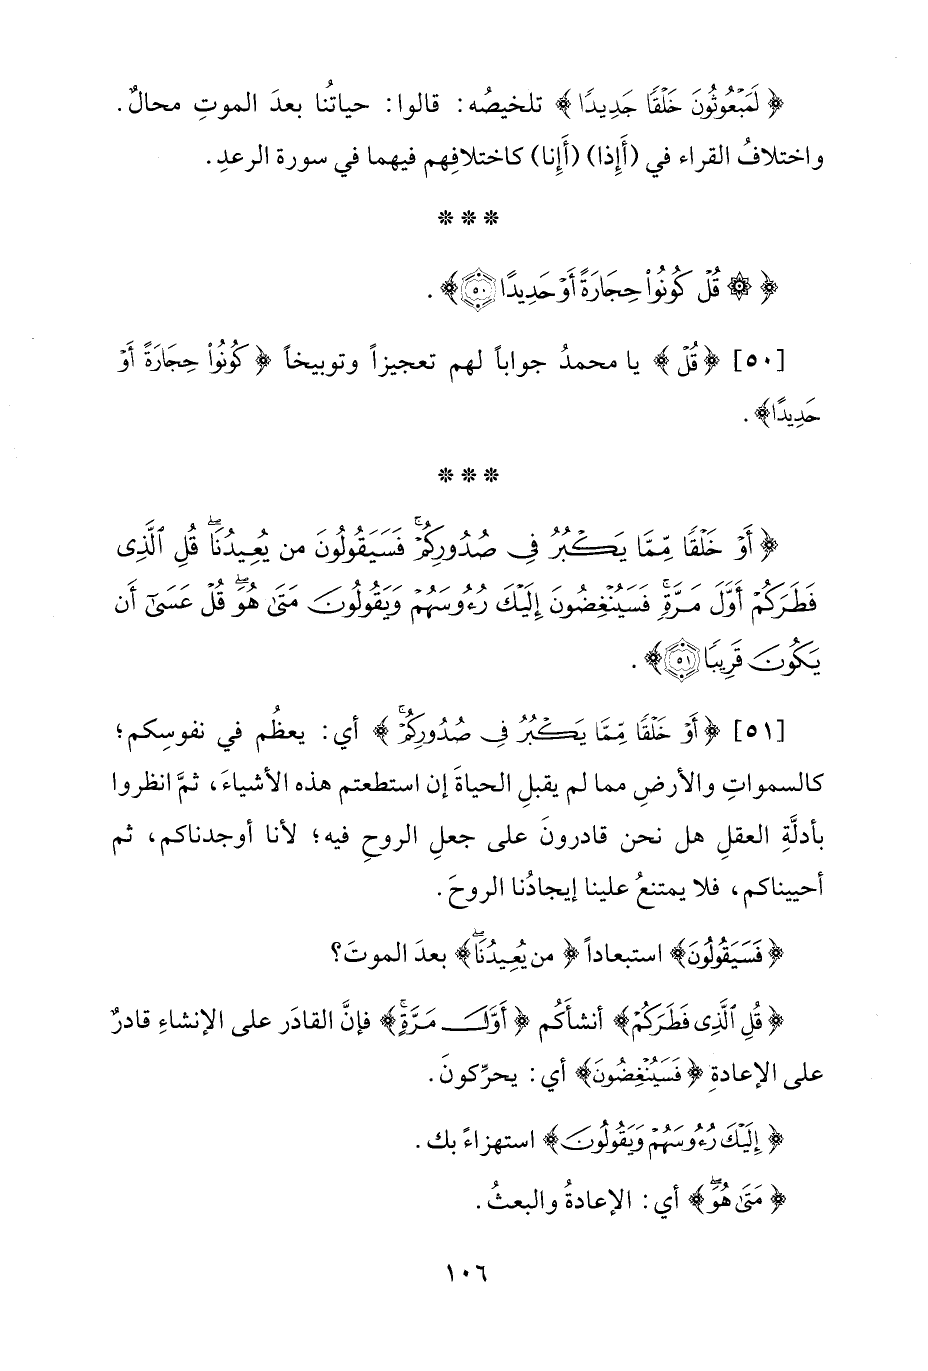 ﴿ لَمَبْعُوثُونَ خَلْقًا جَدِيدًا ﴾ تلخيصُه: قالوا: حياتُنا بعدَ الموتِ محالٌ.
واختلافُ القراء في (أَإِذا) (أَإِنا) كاختلافِهم فيهما في سورة الرعدِ.
* * *
﴿ ۞ قُلْ كُونُوا۟ حِجَارَةً أَوْ حَدِيدًا ٥٠ ﴾.
[٥٠] ﴿ قُلْ ﴾ يا محمدُ جواباً لهم تعجيزاً وتوبيخاً ﴿ كُونُوا۟ حِجَارَةً أَوْ
حَدِيدًا ﴾.
* * *
﴿ أَوْ خَلْقًا مِّمَّا يَكْبُرُ فِى صُدُورِكُمْ ۚ فَسَيَقُولُونَ مَن يُعِيدُنَا ۖ قُلِ ٱلَّذِى
فَطَرَكُمْ أَوَّلَ مَرَّةٍ ۚ فَسَيُنْغِضُونَ إِلَيْكَ رُءُوسَهُمْ وَيَقُولُونَ مَتَىٰ هُوَ ۖ قُلْ عَسَىٰٓ أَن
يَكُونَ قَرِيبًا ٥١ ﴾.
[٥١] ﴿ أَوْ خَلْقًا مِّمَّا يَكْبُرُ فِى صُدُورِكُمْ ۚ ﴾ أي: يعظُم في نفوسِكم؛
كالسمواتِ والأرضِ مما لم يقبلِ الحياةَ إن استطعتم هذه الأشياءَ، ثمَّ انظروا
بأدلَّةِ العقلِ هل نحن قادرونَ على جعلِ الروحِ فيه؛ لأنا أوجدناكم، ثم
أحييناكم، فلا يمتنعُ علينا إيجادُنا الروحَ.
﴿ فَسَيَقُولُونَ ﴾ استبعاداً ﴿ مَن يُعِيدُنَا ۖ ﴾ بعدَ الموتَ؟
﴿ قُلِ ٱلَّذِى فَطَرَكُمْ ﴾ أنشأَكُم ﴿ أَوَّلَ مَرَّةٍ ۚ ﴾ فإنَّ القادَر على الإنشاءِ قادرٌ
على الإعادةِ ﴿ فَسَيُنْغِضُونَ ﴾ أي: يحرِّكونَ.
﴿ إِلَيْكَ رُءُوسَهُمْ وَيَقُولُونَ ﴾ استهزاءً بك.
﴿ مَتَىٰ هُوَ ۖ ﴾ أي: الإعادةُ والبعثُ.
١٠٦